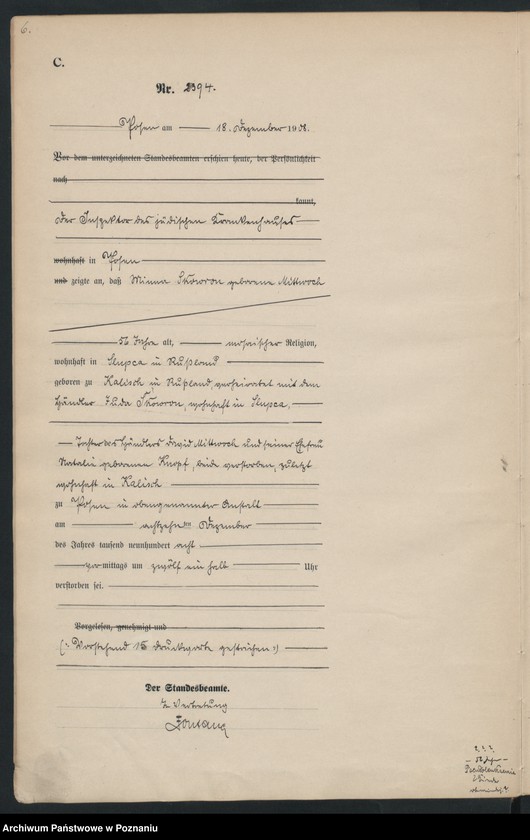 6.
C.
Nr. 2394.
Posen am 18. Dezember 1908.
Vor dem unterzeichneten Standesbeamten erschien heute, der Persönlichkeit
nach
kannt,
Der Inspektor des jüdischen Krankenhauses
wohnhaft in Posen
und zeigte an, daß Minna Skowron geborene Mittwoch
56 Jahre alt, mosaischer Religion,
wohnhaft in Slupca in Rußland
geboren zu Kalisch in Rußland, verheiratet mit dem
Händler Juda Skowron, wohnhaft in Slupca,
Tochter des Händlers David Mittwoch und seiner Ehefrau
Natalie geborenen Knopf, beide verstorben, zuletzt
wohnhaft in Kalisch
zu Posen in obengenannter Anstalt
am achtzehnten Dezember
des Jahres tausend neunhundert acht
vormittags um zwölf ein halb Uhr
verstorben sei.
Vorgelesen, genehmigt und
(: Vorstehend 15 Druckworte gestrichen :)
Der Standesbeamte.
In Vertretung
Archiwum Państwowe w Poznaniu